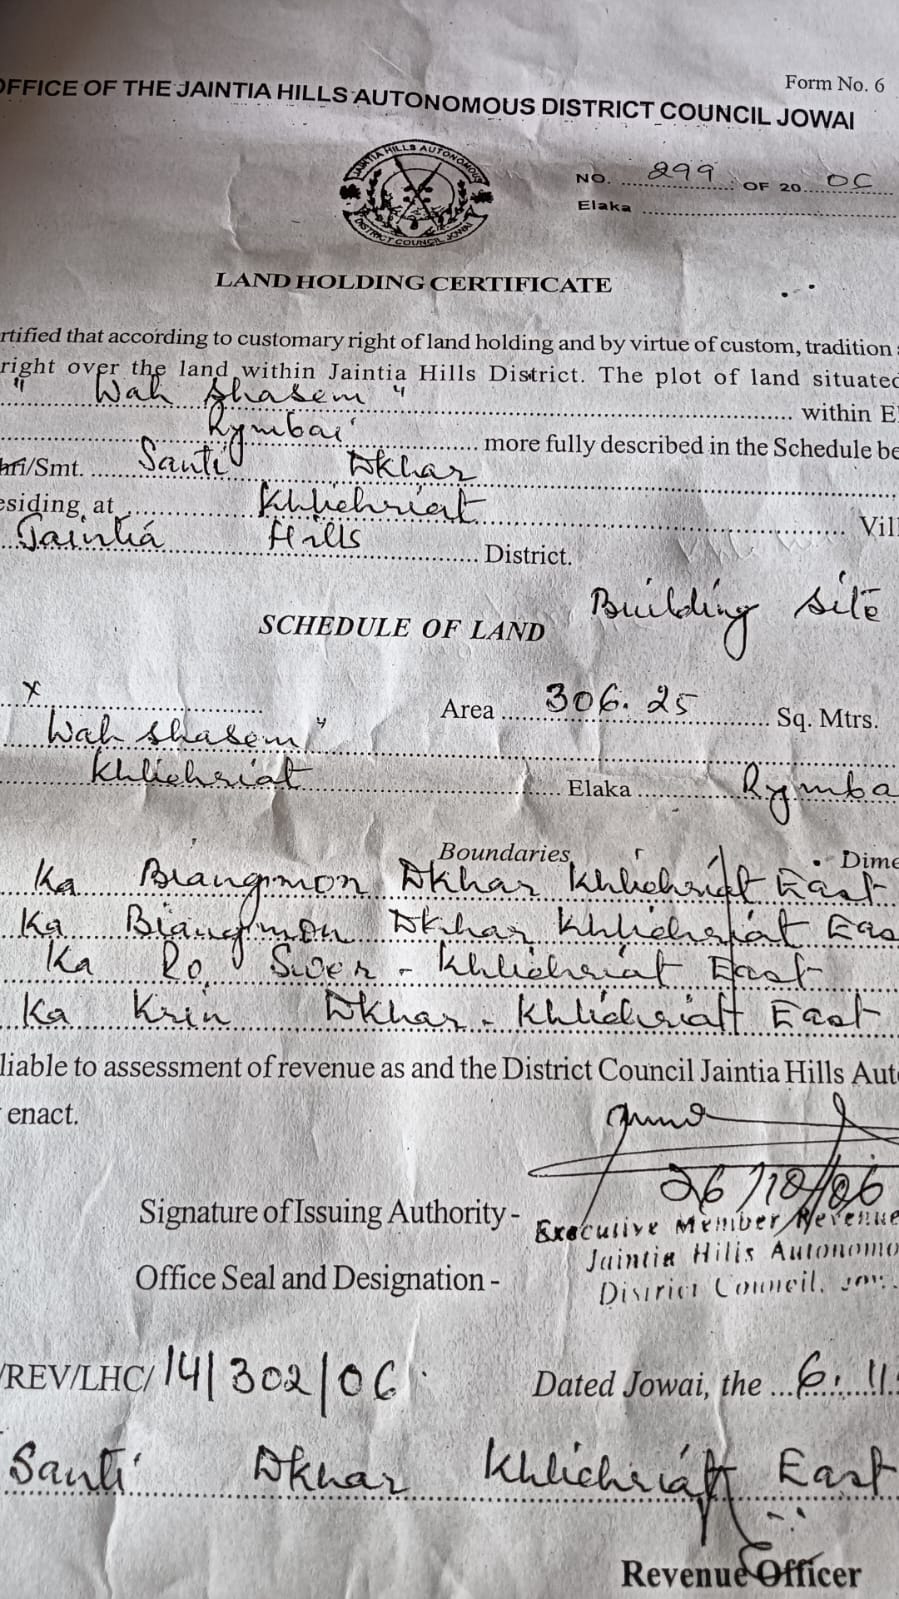 Form No. 6
OFFICE OF THE JAINTIA HILLS AUTONOMOUS DISTRICT COUNCIL JOWAI
JAINTIA HILLS AUTONOMOUS
DISTRICT COUNCIL JOWAI
NO. 299 OF 20 06
Elaka
LAND HOLDING CERTIFICATE
rtified that according to customary right of land holding and by virtue of custom, tradition
right over the land within Jaintia Hills District. The plot of land situated
" Wah Shasem " within E
Rymbai more fully described in the Schedule be
hri/Smt. Santi Dkhar
esiding at Khliehriat Vill
Jaintia Hills District.
Building site
SCHEDULE OF LAND
x Area 306.25 Sq. Mtrs.
Wah shasem "
Khliehriat Elaka Rymba
Boundaries Dime
Ka Biangmon Dkhar Khliehriat East
Ka Biangmon Dkhar Khliehriat Eas
Ka Ro Swer - Khliehriat East
Ka Krin Dkhar - Khliehriat East
liable to assessment of revenue as and the District Council Jaintia Hills Aut
enact.
26/10/06
Signature of Issuing Authority - Executive Member Revenue
Jaintia Hills Autonomo
Office Seal and Designation - District Council, Jow
/REV/LHC/ 14/302/06 Dated Jowai, the 6.11.
Santi Dkhar Khliehriat East
Revenue Officer